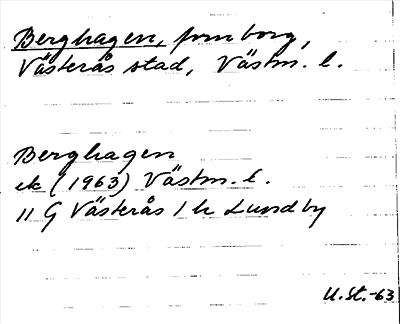 Berghagen, fornborg,
Västerås stad, Västm. l.
Berghagen
ek (1963) Västm. l.
11 G Västerås 1 h Lundby
U.St.-63